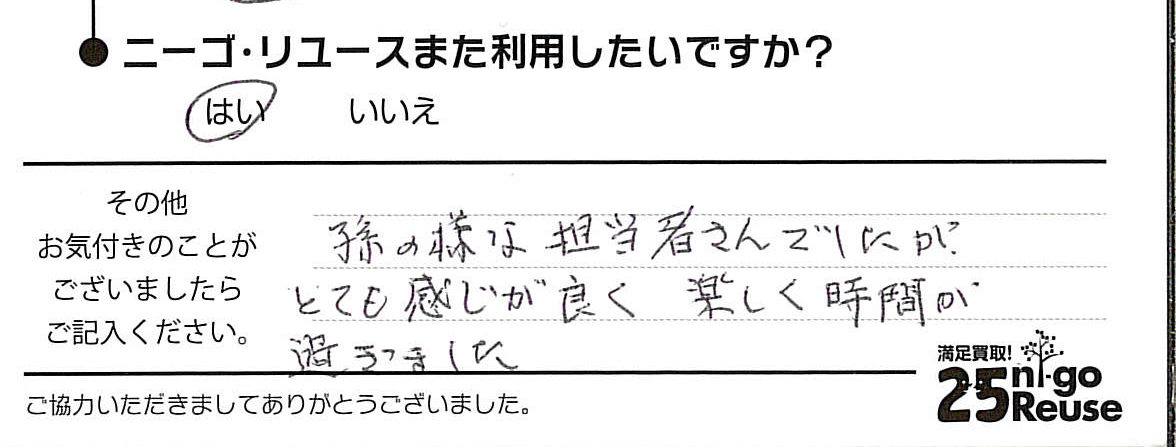 ニーゴ・リユースまた利用したいですか?
はい いいえ
その他
お気付きのことが
ございましたら
ご記入ください。
孫の様な担当者さんでしたが
とても感じが良く 楽しく時間が
過ぎました
ご協力いただきましてありがとうございました。
満足買取!
25 ni-go
Reuse